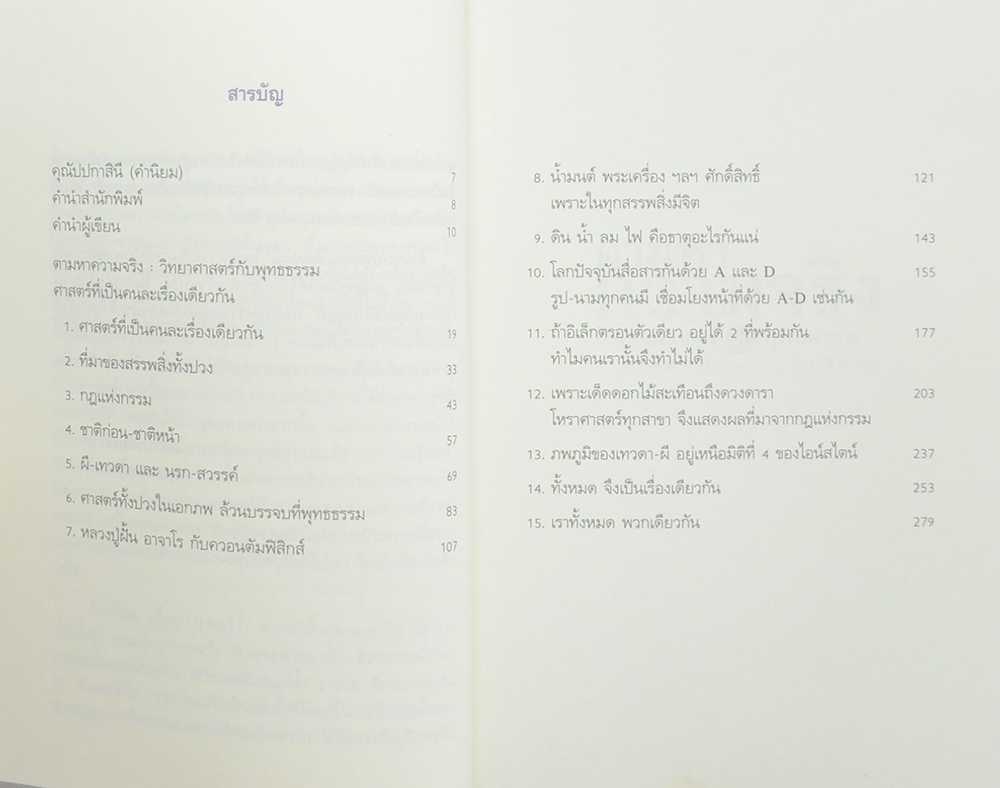 สารบัญ
คุณัปปกาสินี (คำนิยม) 7
คำนำสำนักพิมพ์ 8
คำนำผู้เขียน 10
ตามหาความจริง : วิทยาศาสตร์กับพุทธธรรม
ศาสตร์ที่เป็นคนละเรื่องเดียวกัน
1. ศาสตร์ที่เป็นคนละเรื่องเดียวกัน 19
2. ที่มาของสรรพสิ่งทั้งปวง 33
3. กฎแห่งกรรม 43
4. ชาติก่อน-ชาติหน้า 57
5. ผี-เทวดา และ นรก-สวรรค์ 69
6. ศาสตร์ทั้งปวงในเอกภพ ล้วนบรรจบที่พุทธธรรม 83
7. หลวงปู่ฝั้น อาจาโร กับควอนตัมฟิสิกส์ 107
8. น้ำมนต์ พระเครื่อง ฯลฯ ศักดิ์สิทธิ์ 121
เพราะในทุกสรรพสิ่งมีจิต
9. ดิน น้ำ ลม ไฟ คือธาตุอะไรกันแน่ 143
10. โลกปัจจุบันสื่อสารกันด้วย A และ D 155
รูป-นามทุกคนมี เชื่อมโยงหน้าที่ด้วย A-D เช่นกัน
11. ถ้าอิเล็กตรอนตัวเดียว อยู่ได้ 2 ที่พร้อมกัน 177
ทำไมคนเรานั้นจึงทำไม่ได้
12. เพราะเด็ดดอกไม้สะเทือนถึงดวงดารา 203
โหราศาสตร์ทุกสาขา จึงแสดงผลที่มาจากกฎแห่งกรรม
13. ภพภูมิของเทวดา-ผี อยู่เหนือมิติที่ 4 ของไอน์สไตน์ 237
14. ทั้งหมด จึงเป็นเรื่องเดียวกัน 253
15. เราทั้งหมด พวกเดียวกัน 279